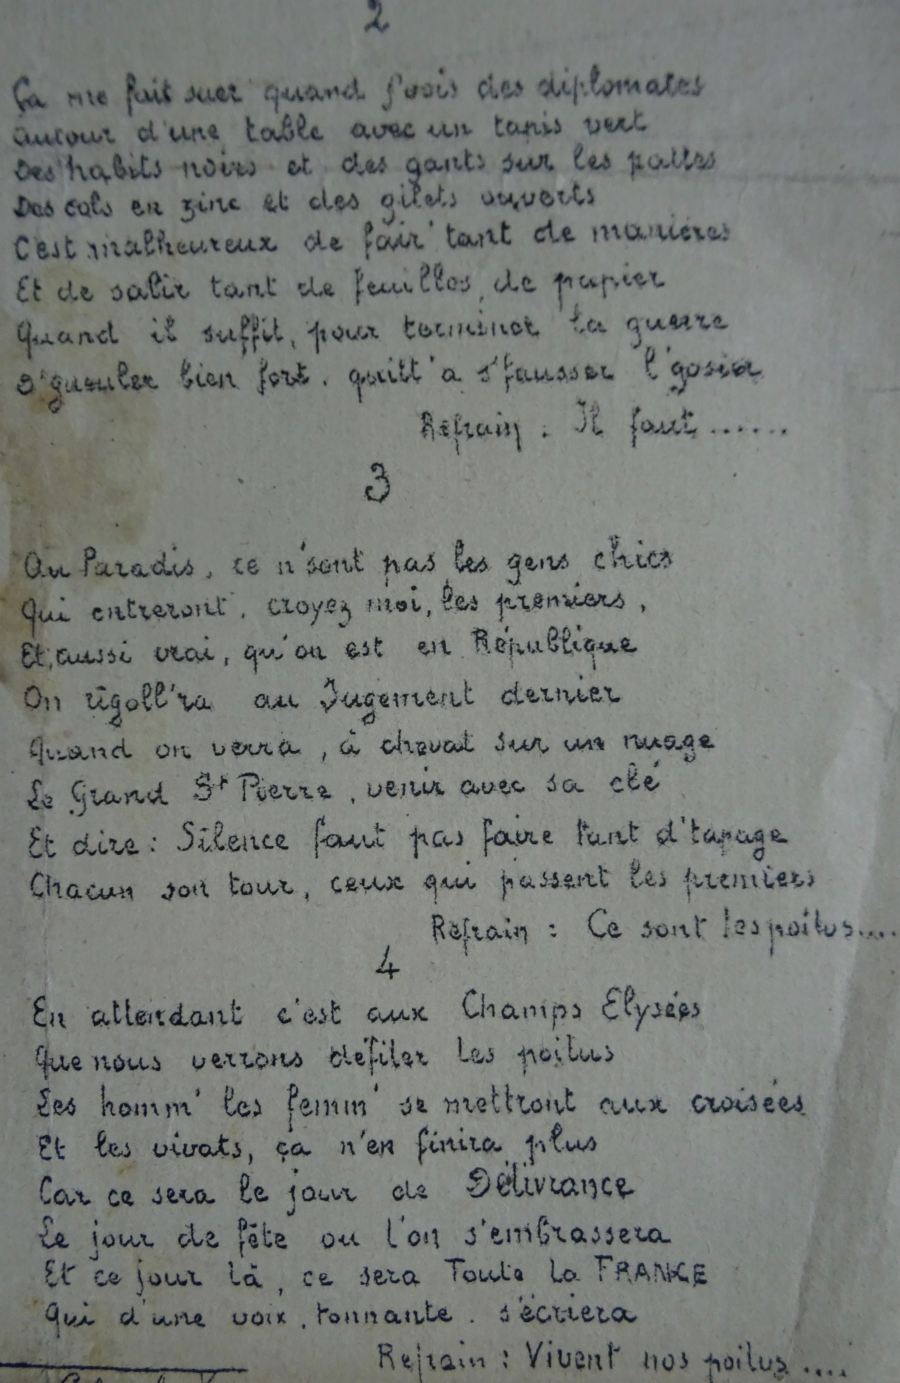 2
Ça me fait suer quand j'vois des diplomates
autour d'une table avec un tapis vert
Des habits noirs et des gants sur les pattes
Des cols en zinc et des gilets ouverts
C'est malheureux de fair' tant de manières
Et de salir tant de feuilles, de papier
Quand il suffit, pour terminer la guerre
D'gueuler bien fort, quitt'à s'fausser l'gosier
Refrain : Il faut ......
3
Au Paradis, ce n'sont pas les gens chics
Qui entreront, croyez moi, les premiers,
Et, aussi vrai, qu'on est en République
On rigoll'ra au Jugement dernier
Quand on verra, à cheval sur un nuage
Le Grand St Pierre, venir avec sa clé
Et dire : Silence faut pas faire tant d'tapage
Chacun son tour, ceux qui passent les premiers
Refrain : Ce sont les poilus....
4
En attendant c'est aux Champs Elysées
Que nous verrons défiler les poilus
Les homm' les femm' se mettront aux croisées
Et les vivats, ça n'en finira plus
Car ce sera le jour de Délivrance
Le jour de fête ou l'on s'embrassera
Et ce jour là, ce sera Toute la FRANCE
Qui d'une voix, tonnante, s'écriera
Refrain : Vivent nos poilus ....